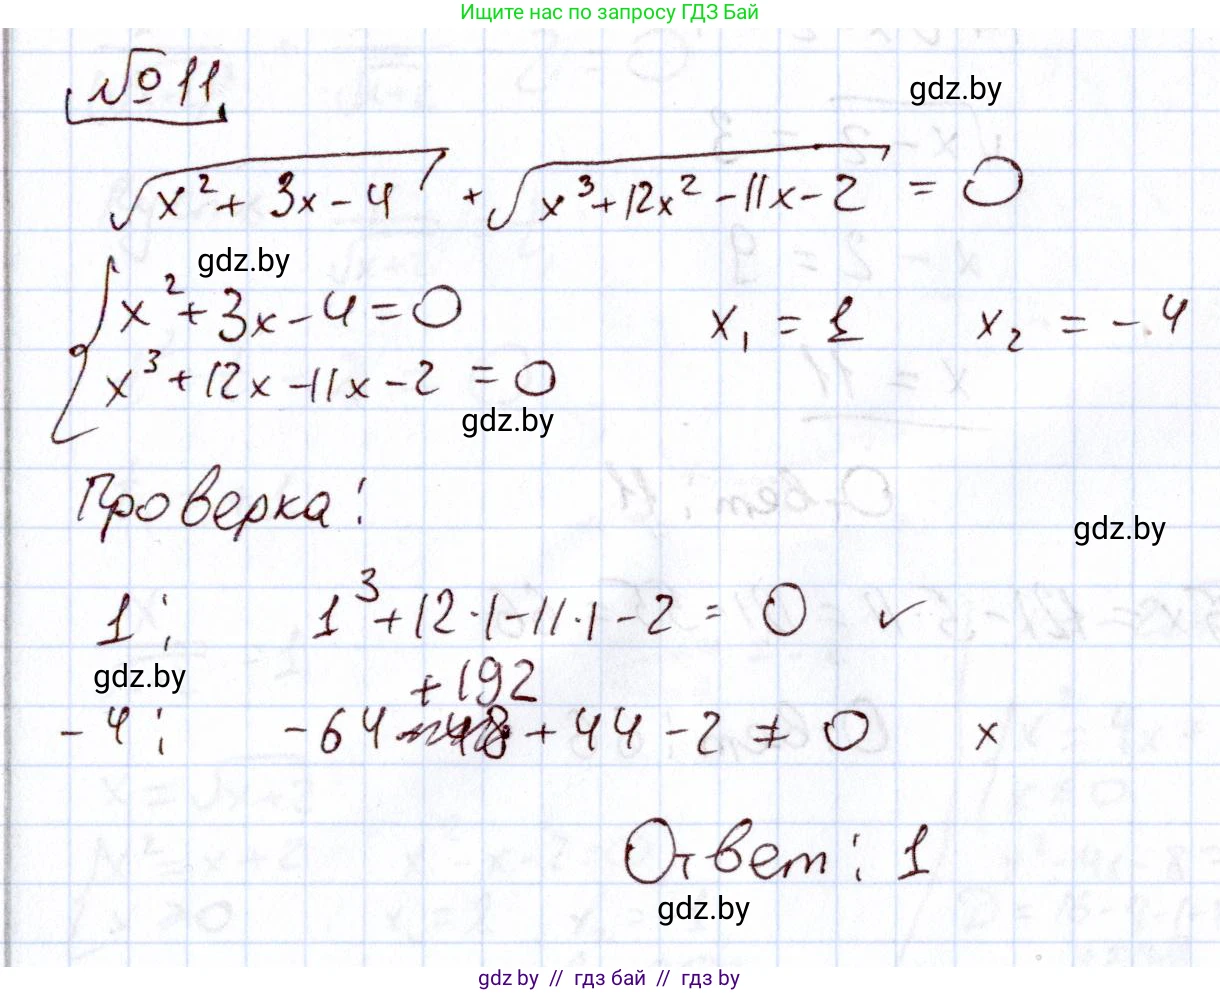 Ищите нас по запросу ГДЗ Бай
№ 11
gdz.by
√(x² + 3x - 4) + √(x³ + 12x² - 11x - 2) = 0
gdz.by
x² + 3x - 4 = 0
x₁ = 1 x₂ = -4
x³ + 12x - 11x - 2 = 0
gdz.by
Проверка:
gdz.by
1: 1³ + 12·1 - 11·1 - 2 = 0 ✓
gdz.by
+192
-4: -64 + 44 - 2 ≠ 0 x
Ответ: 1
gdz.by
gdz.by // гдз бай // гдз by